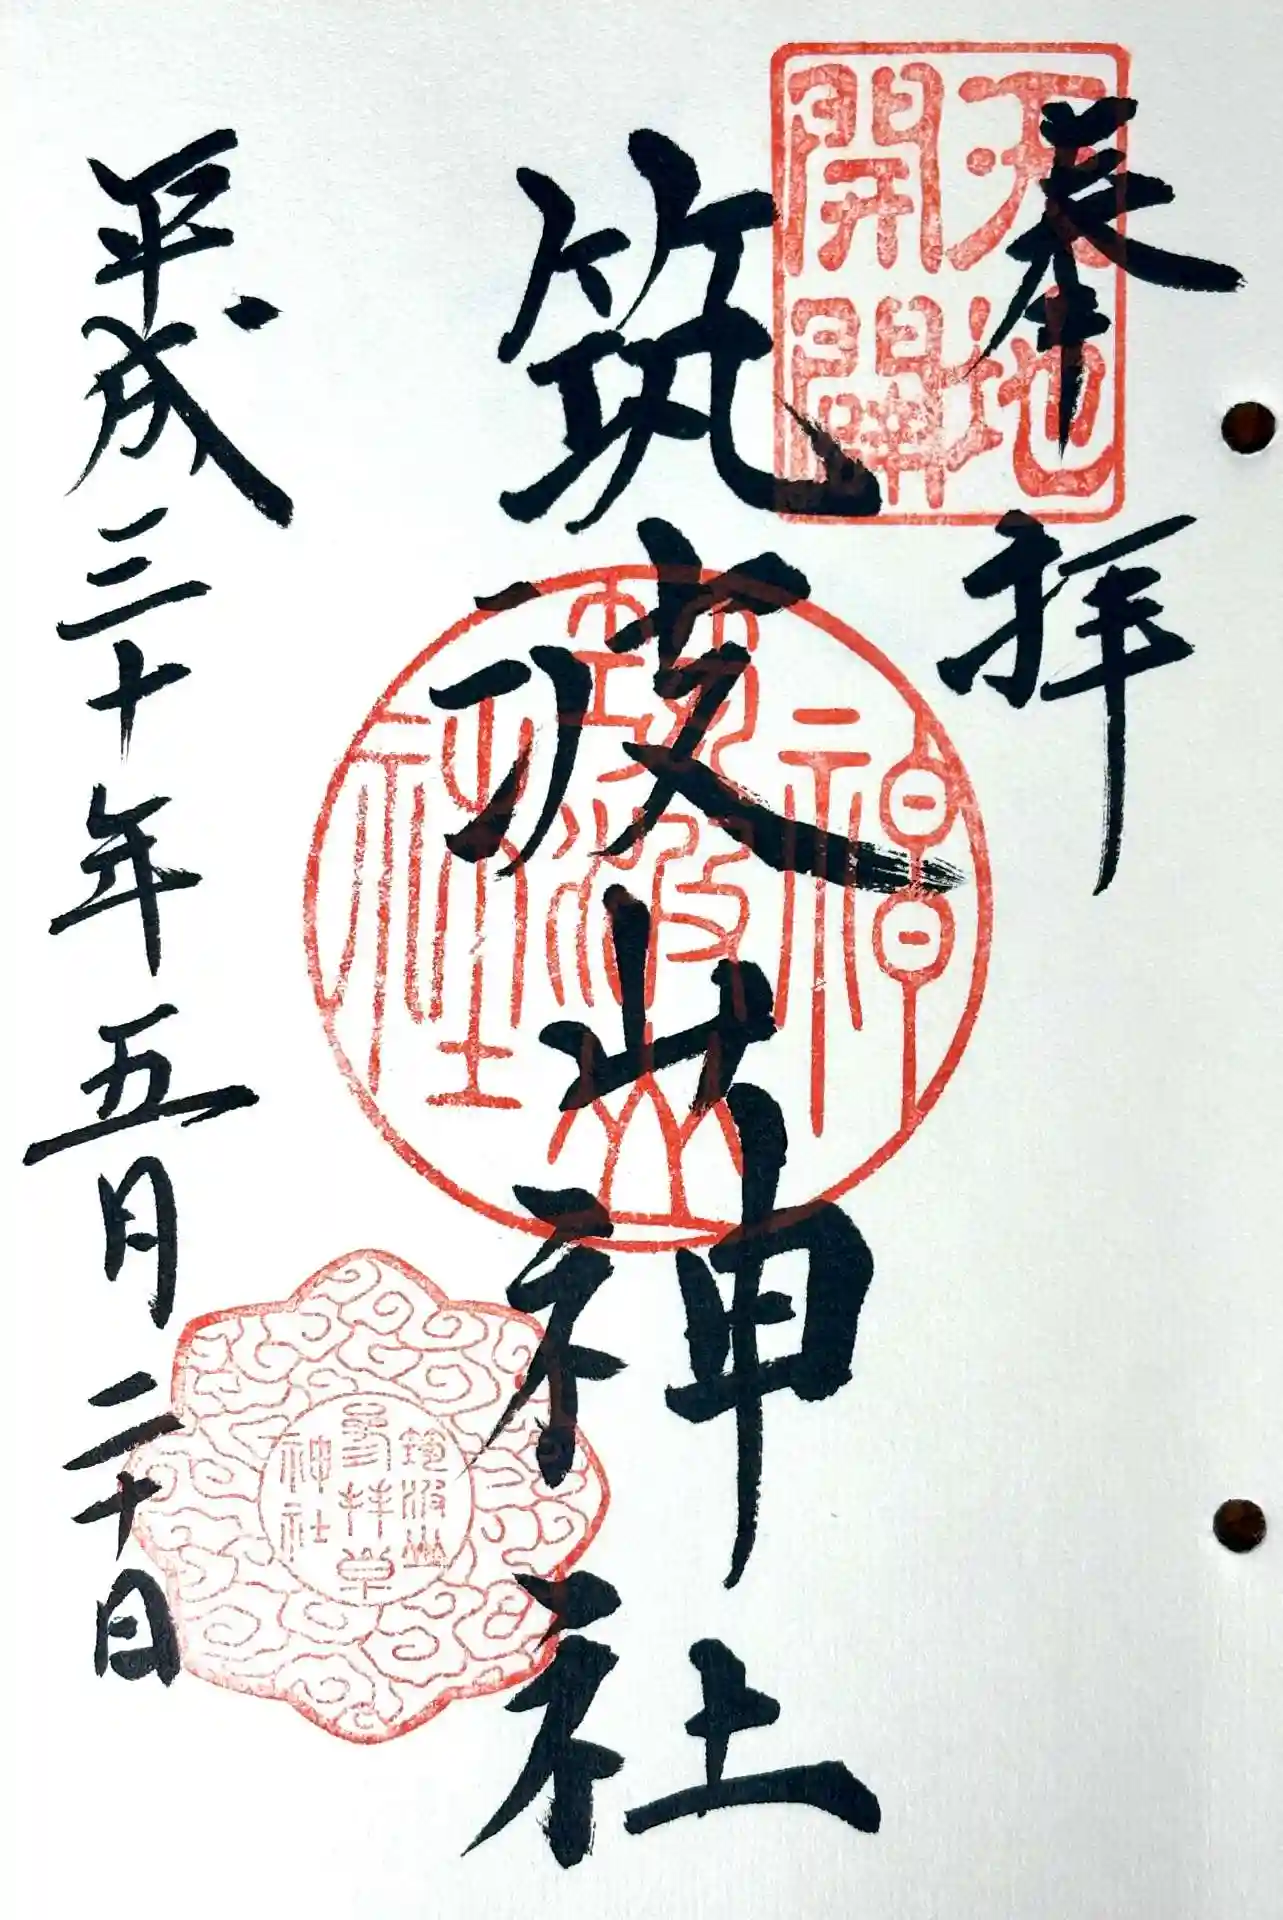 奉拝
天地
開闢
筑波山神社
筑波山
神社
筑波山
拝堂
神社
平成三十年五月二十日